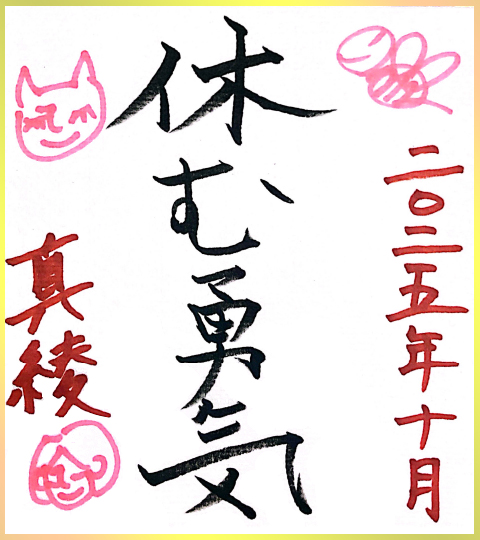 二〇二五年十月
休む勇気
真綾